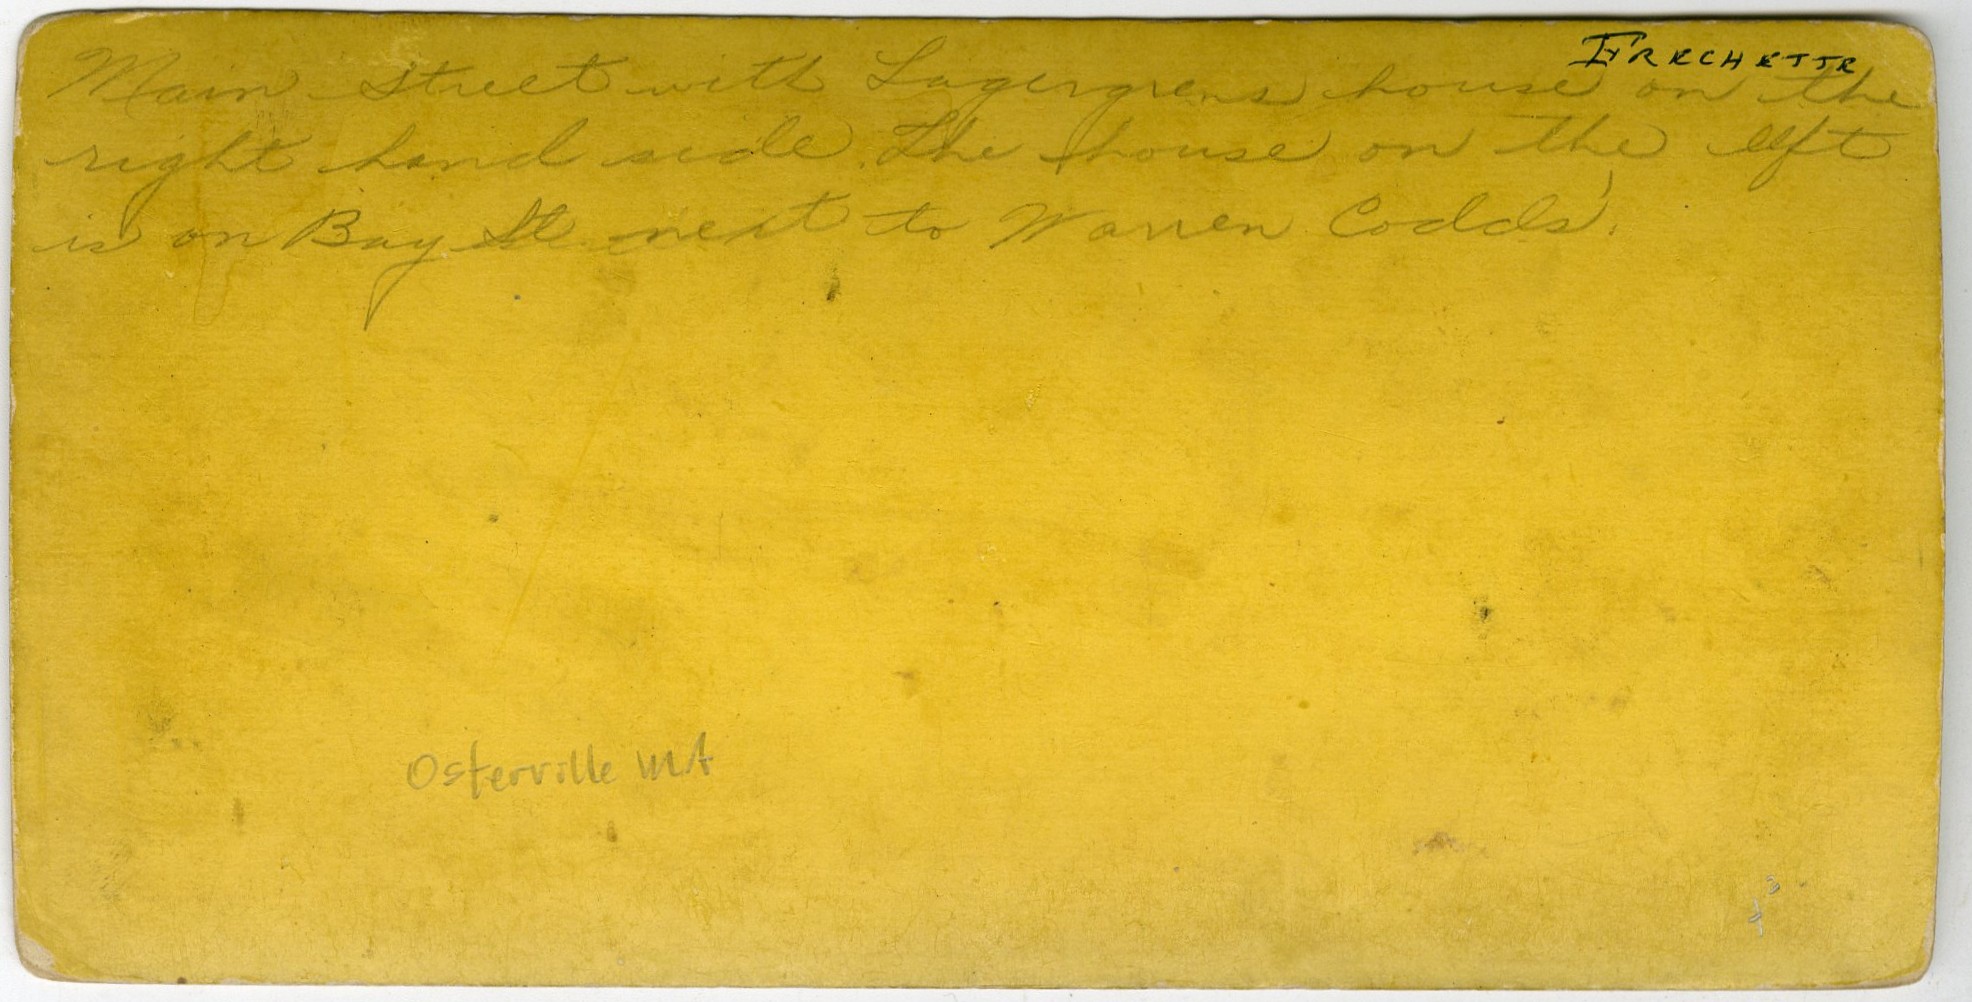 FRECHETTE
Main Street with Lagergrens house on the
right hand side. The house on the left
is on Bay St. next to Warren Codds'.
Osterville MA